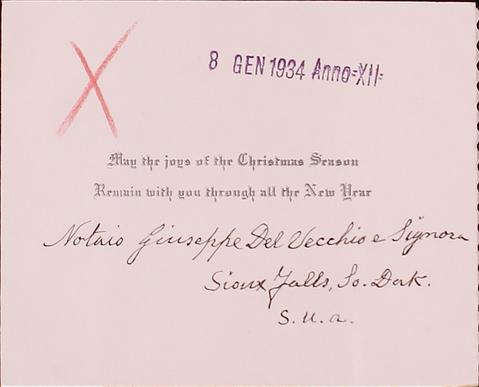 8 GEN 1934 Anno=XII=
May the joys of the Christmas Season
Remain with you through all the New Year
Notaio Giuseppe Del Vecchio e Signora
Sioux Falls, So. Dak.
S. U. A.